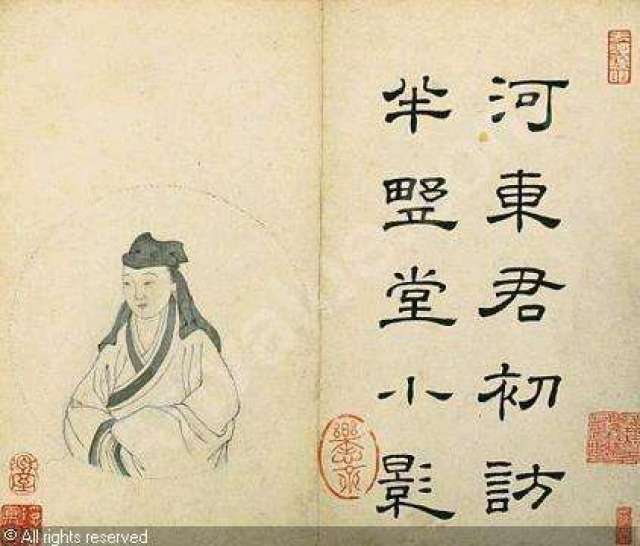 河東君初訪
半墅堂小影
© All rights reserved